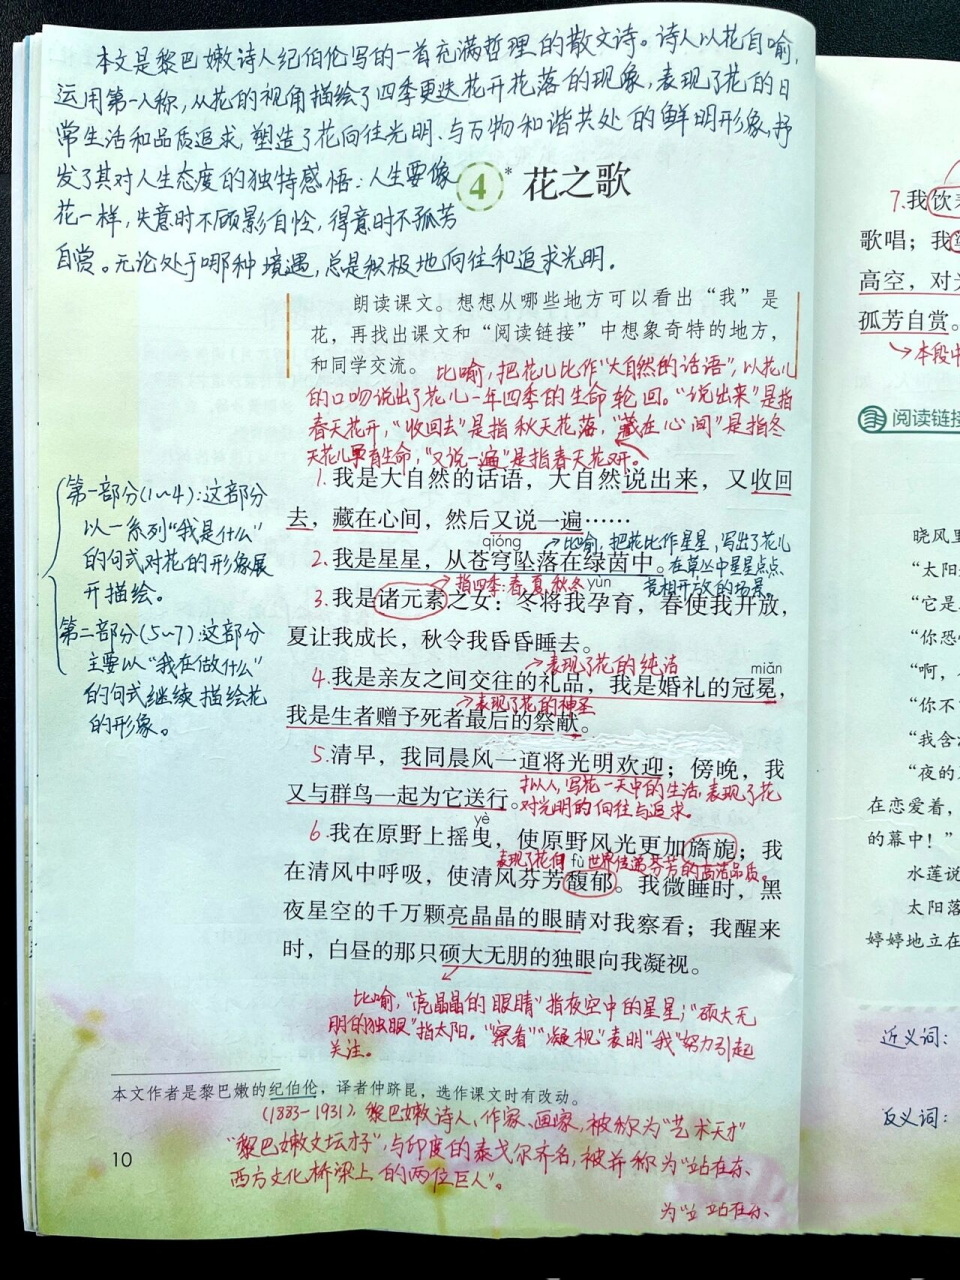 本文是黎巴嫩诗人纪伯伦写的一首充满哲理的散文诗。诗人以花自喻,
运用第一人称,从花的视角描绘了四季更迭花开花落的现象,表现了花的日
常生活和品质追求,塑造了花向往光明、与万物和谐共处的鲜明形象,抒
发了其对人生态度的独特感悟:人生要像
花一样,失意时不顾影自怜,得意时不孤芳
自赏。无论处于哪种境遇,总是积极地向往和追求光明.
4* 花之歌
朗读课文。想想从哪些地方可以看出“我”是
花,再找出课文和“阅读链接”中想象奇特的地方,
和同学交流。
比喻,把花儿比作“大自然的话语”,以花儿
的口吻说出了花儿一年四季的生命轮回。“说出来”是指
春天花开,“收回去”是指秋天花落,“藏在心间”是指冬
天花儿孕育生命,“又说一遍”是指春天花又开。
1.我是大自然的话语,大自然说出来,又收回
去,藏在心间,然后又说一遍……
qióng
比喻,把花比作星星,写出了花儿
2.我是星星,从苍穹坠落在绿茵中。
在草丛中星星点点、
竞相开放的场景。
指四季:春、夏、秋、冬
yùn
3.我是诸元素之女:冬将我孕育,春使我开放,
夏让我成长,秋令我昏昏睡去。
表现了花的纯洁
miǎn
4.我是亲友之间交往的礼品,我是婚礼的冠冕,
表现了花的神圣
我是生者赠予死者最后的祭献。
5.清早,我同晨风一道将光明欢迎;傍晚,我
又与群鸟一起为它送行。
拟人,写花一天中的生活,表现了花
对光明的向往与追求。
yè
6.我在原野上摇曳,使原野风光更加旖旎;我
表现了花向世界传递芬芳的高洁品质。
fù
在清风中呼吸,使清风芬芳馥郁。我微睡时,黑
夜星空的千万颗亮晶晶的眼睛对我察看;我醒来
时,白昼的那只硕大无朋的独眼向我凝视。
比喻,“亮晶晶的眼睛”指夜空中的星星;“硕大无
朋的独眼”指太阳。“察看”“凝视”表明“我”努力引起
关注。
第一部分(1~4):这部分
以一系列“我是什么”
的句式对花的形象展
开描绘。
第二部分(5~7):这部分
主要以“我在做什么”
的句式继续描绘花
的形象。
本文作者是黎巴嫩的纪伯伦,译者仲跻昆,选作课文时有改动。
(1883-1931),黎巴嫩诗人、作家、画家,被称为“艺术天才”
“黎巴嫩文坛才子”,与印度的泰戈尔齐名,被并称为“站在东
西方文化桥梁上的两位巨人”。
为“立 站在东
10
7.我饮
歌唱;我
高空,对
孤芳自赏。
本段中
阅读链接
晓风里
“太阳
“它是
“你恐
“啊,
“你不
“我含
“夜的
在恋爱着,
的幕中!”
水莲说
太阳落
婷婷地立在
近义词:
反义词: